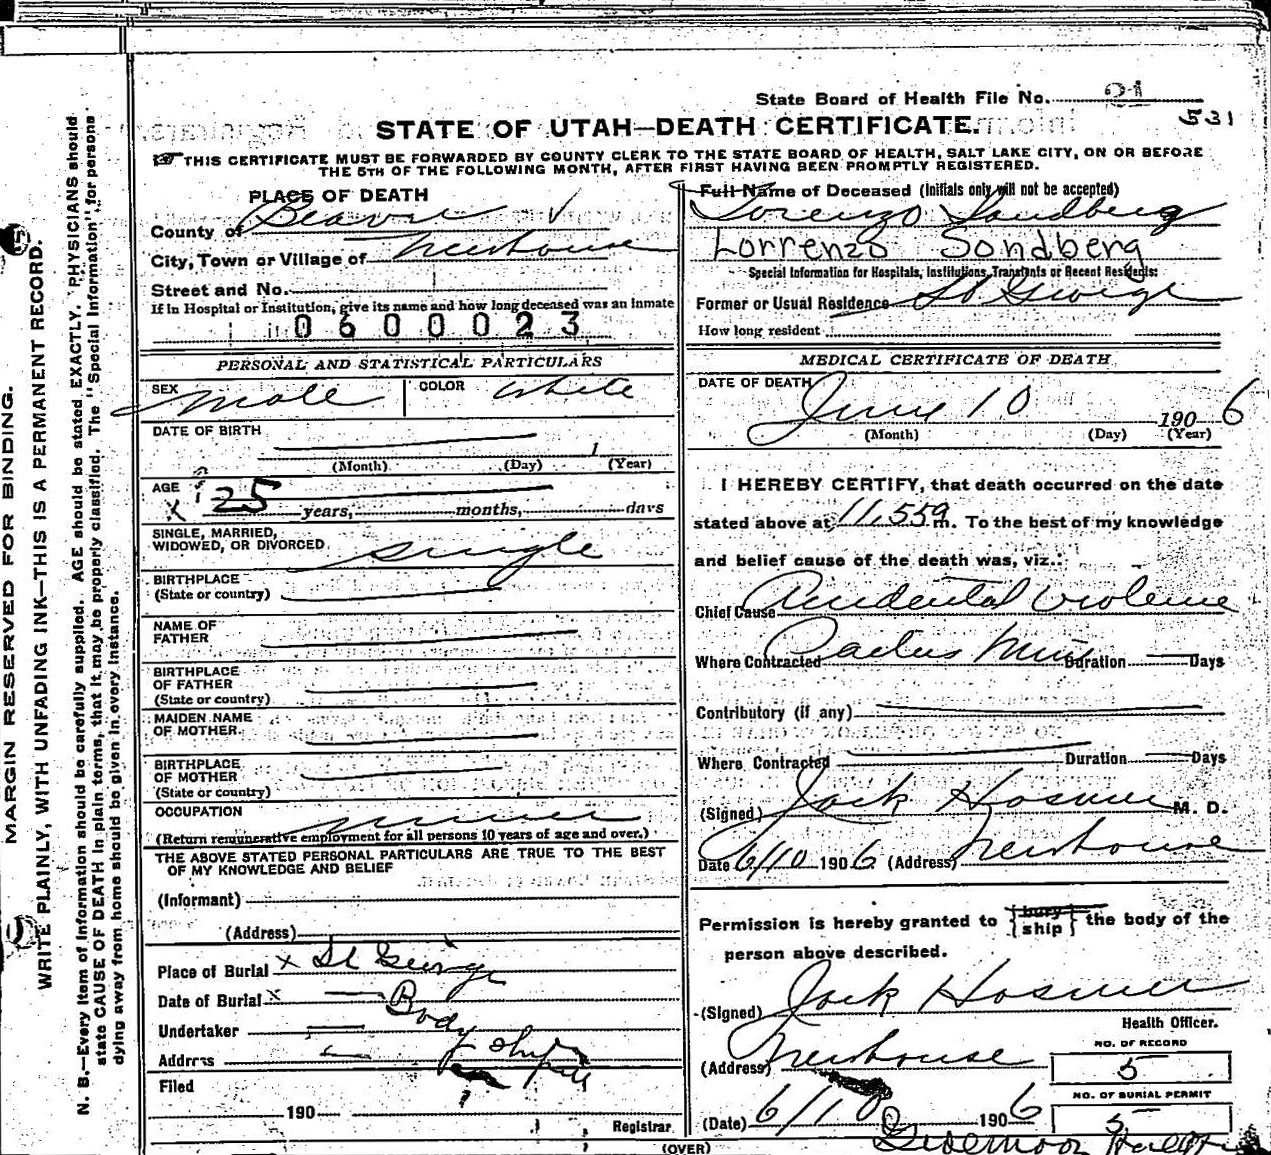 State Board of Health File No. 21
531
STATE OF UTAH—DEATH CERTIFICATE.
THIS CERTIFICATE MUST BE FORWARDED BY COUNTY CLERK TO THE STATE BOARD OF HEALTH, SALT LAKE CITY, ON OR BEFORE
THE 5TH OF THE FOLLOWING MONTH, AFTER FIRST HAVING BEEN PROMPTLY REGISTERED.
PLACE OF DEATH
County of Beaver
City, Town or Village of Newhouse
Street and No.
If in Hospital or Institution, give its name and how long deceased was an inmate
0600023
PERSONAL AND STATISTICAL PARTICULARS
SEX Male COLOR White
DATE OF BIRTH 1
(Month) (Day) (Year)
AGE
? 25 years, months, days
SINGLE, MARRIED,
WIDOWED, OR DIVORCED Single
BIRTHPLACE
(State or country)
NAME OF
FATHER
BIRTHPLACE
OF FATHER
(State or country)
MAIDEN NAME
OF MOTHER
BIRTHPLACE
OF MOTHER
(State or country)
OCCUPATION miner
(Return remunerative employment for all persons 10 years of age and over.)
THE ABOVE STATED PERSONAL PARTICULARS ARE TRUE TO THE BEST
OF MY KNOWLEDGE AND BELIEF
(Informant)
(Address)
Place of Burial x St George
Date of Burial x Body
Undertaker
Address
Filed
190
Registrar
Full Name of Deceased (Initials only will not be accepted)
Lorenzo Sandberg
Lorrenzo Sondberg
Special Information for Hospitals, Institutions, Transients or Recent Residents:
Former or Usual Residence St George
How long resident
MEDICAL CERTIFICATE OF DEATH
DATE OF DEATH
June 10 1906
(Month) (Day) (Year)
I HEREBY CERTIFY, that death occurred on the date
stated above at 11.55 a m. To the best of my knowledge
and belief cause of the death was, viz.:
Chief Cause Accidental Violence
Where Contracted Cactus Mine Duration Days
Contributory (if any)
Where Contracted Duration Days
(Signed) Jack Hosmer M. D.
Date 6/10 1906 (Address) Newhouse
Permission is hereby granted to {bury ship} the body of the
person above described.
(Signed) Jack Hosmer
Health Officer.
(Address) Newhouse
NO. OF RECORD
5
NO. OF BURIAL PERMIT
5
(Date) 6/10 1906
(OVER)
MARGIN RESERVED FOR BINDING.
WRITE PLAINLY, WITH UNFADING INK—THIS IS A PERMANENT RECORD.
N. B.—Every item of information should be carefully supplied. AGE should be stated EXACTLY. PHYSICIANS should
state CAUSE OF DEATH in plain terms, that it may be properly classified. The "Special Information" for persons
dying away from home should be given in every instance.